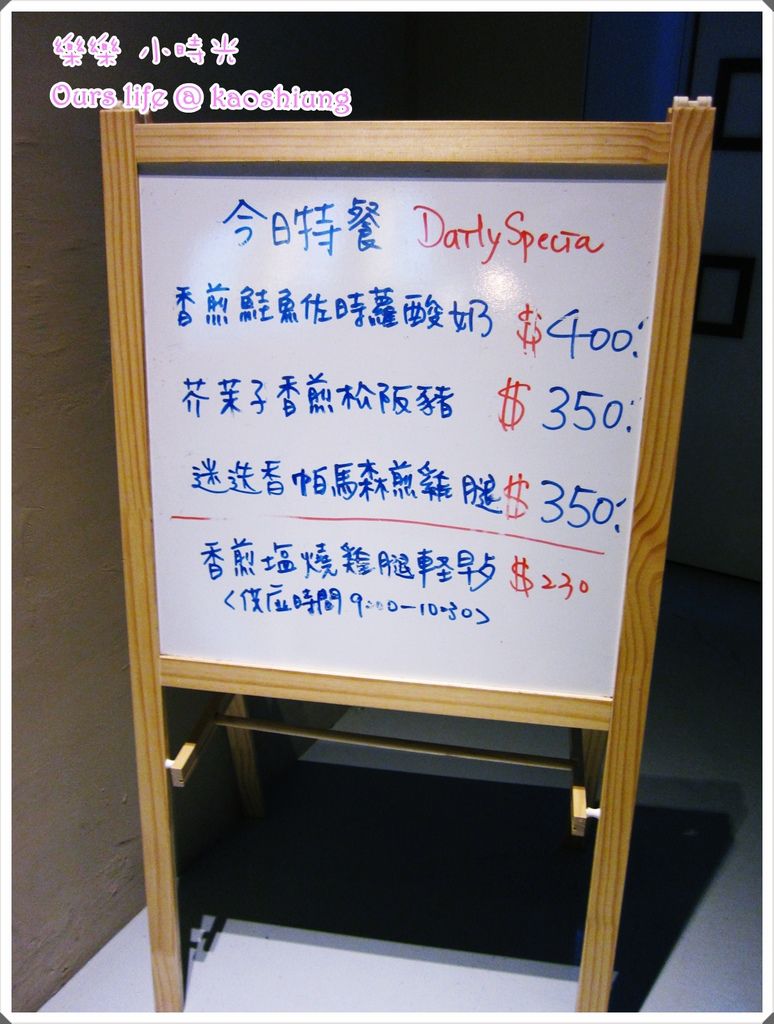 樂樂 小時光
Ours life @ kaoshiung
今日特餐 Daily Specia
香煎鮭魚佐時蘿酸奶 $400.
芥茉子香煎松阪豬 $350.
迷迭香帕馬森煎雞腿 $350.
香煎塩燒雞腿輕早点 $230
<供应時間 9:00-10:30>